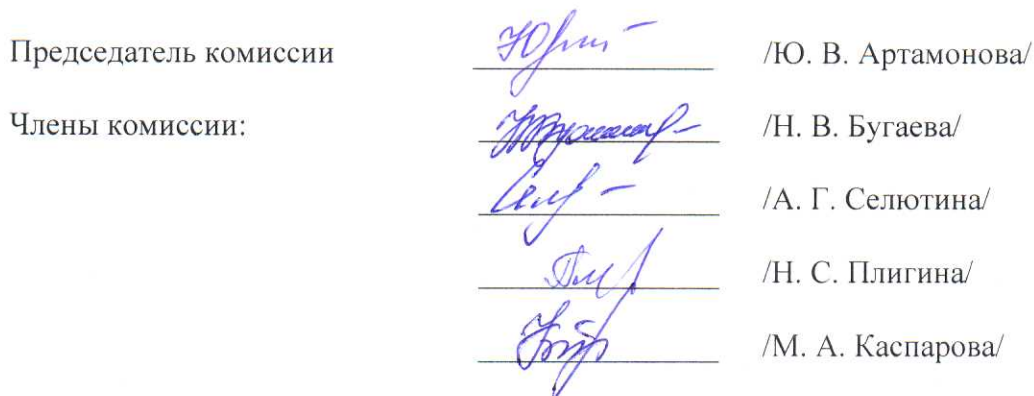 Председатель комиссии /Ю. В. Артамонова/
Члены комиссии: /Н. В. Бугаева/
/А. Г. Селютина/
/Н. С. Плигина/
/М. А. Каспарова/